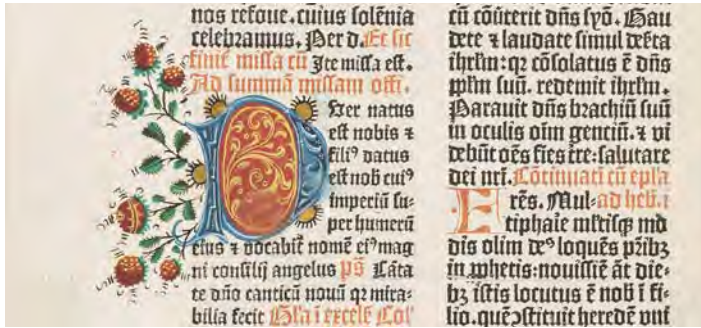 nos refoue.cuius solēnia
celebramus. Per d. Et sic
finit᷑ missa cū Ite missa est.
Ad summā missam offi.
Per natus
est nobis ⁊
filiꝰ datus
est nob̄ cuiꝰ
imperiū su-
per humerū
eius ⁊ vocabit᷑ nomē eiꝰ mag
ni consilij angelus p̄s Cāta
te dn̄o canticū nouū qr mira-
bilia fecit Gl'a i excels̄ Col'
cū cōuterit dn̄s syō. Gau
dete ⁊ laudate simul deẜta
ihrl̄m: qr cōsolatus ē dn̄s
ppl̄m suū. redemit ihrl̄m.
Parauit dn̄s brachiū suū
in oculis oīm genciū. ⁊ vi
debūt oēs fies t̄re: salutare
dei nr̄i. Cōtinuat᷑ cū epl̄a
Er̄es. Mul- ad heb̄. i
tiphaīe ml̄tisqꝫ mō
dis olim deꝰ loquēs pr̄ibꝫ
in ꝓphetis: nouissīe āt die-
bꝫ istis locutus ē nob̄ ī fi-
lio. quē ꝯstituit heredē vni